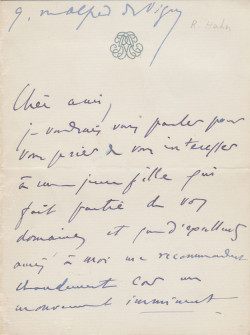 9, rue Alfred de Vigny
R. Hahn
Cher ami,
je voudrais vous parler pour
vous prier de vous intéresser
à une jeune fille qui
fait partie de vos
domaines et que d'excellents
amis à moi me recommandent
chaudement car un
mouvement imminent